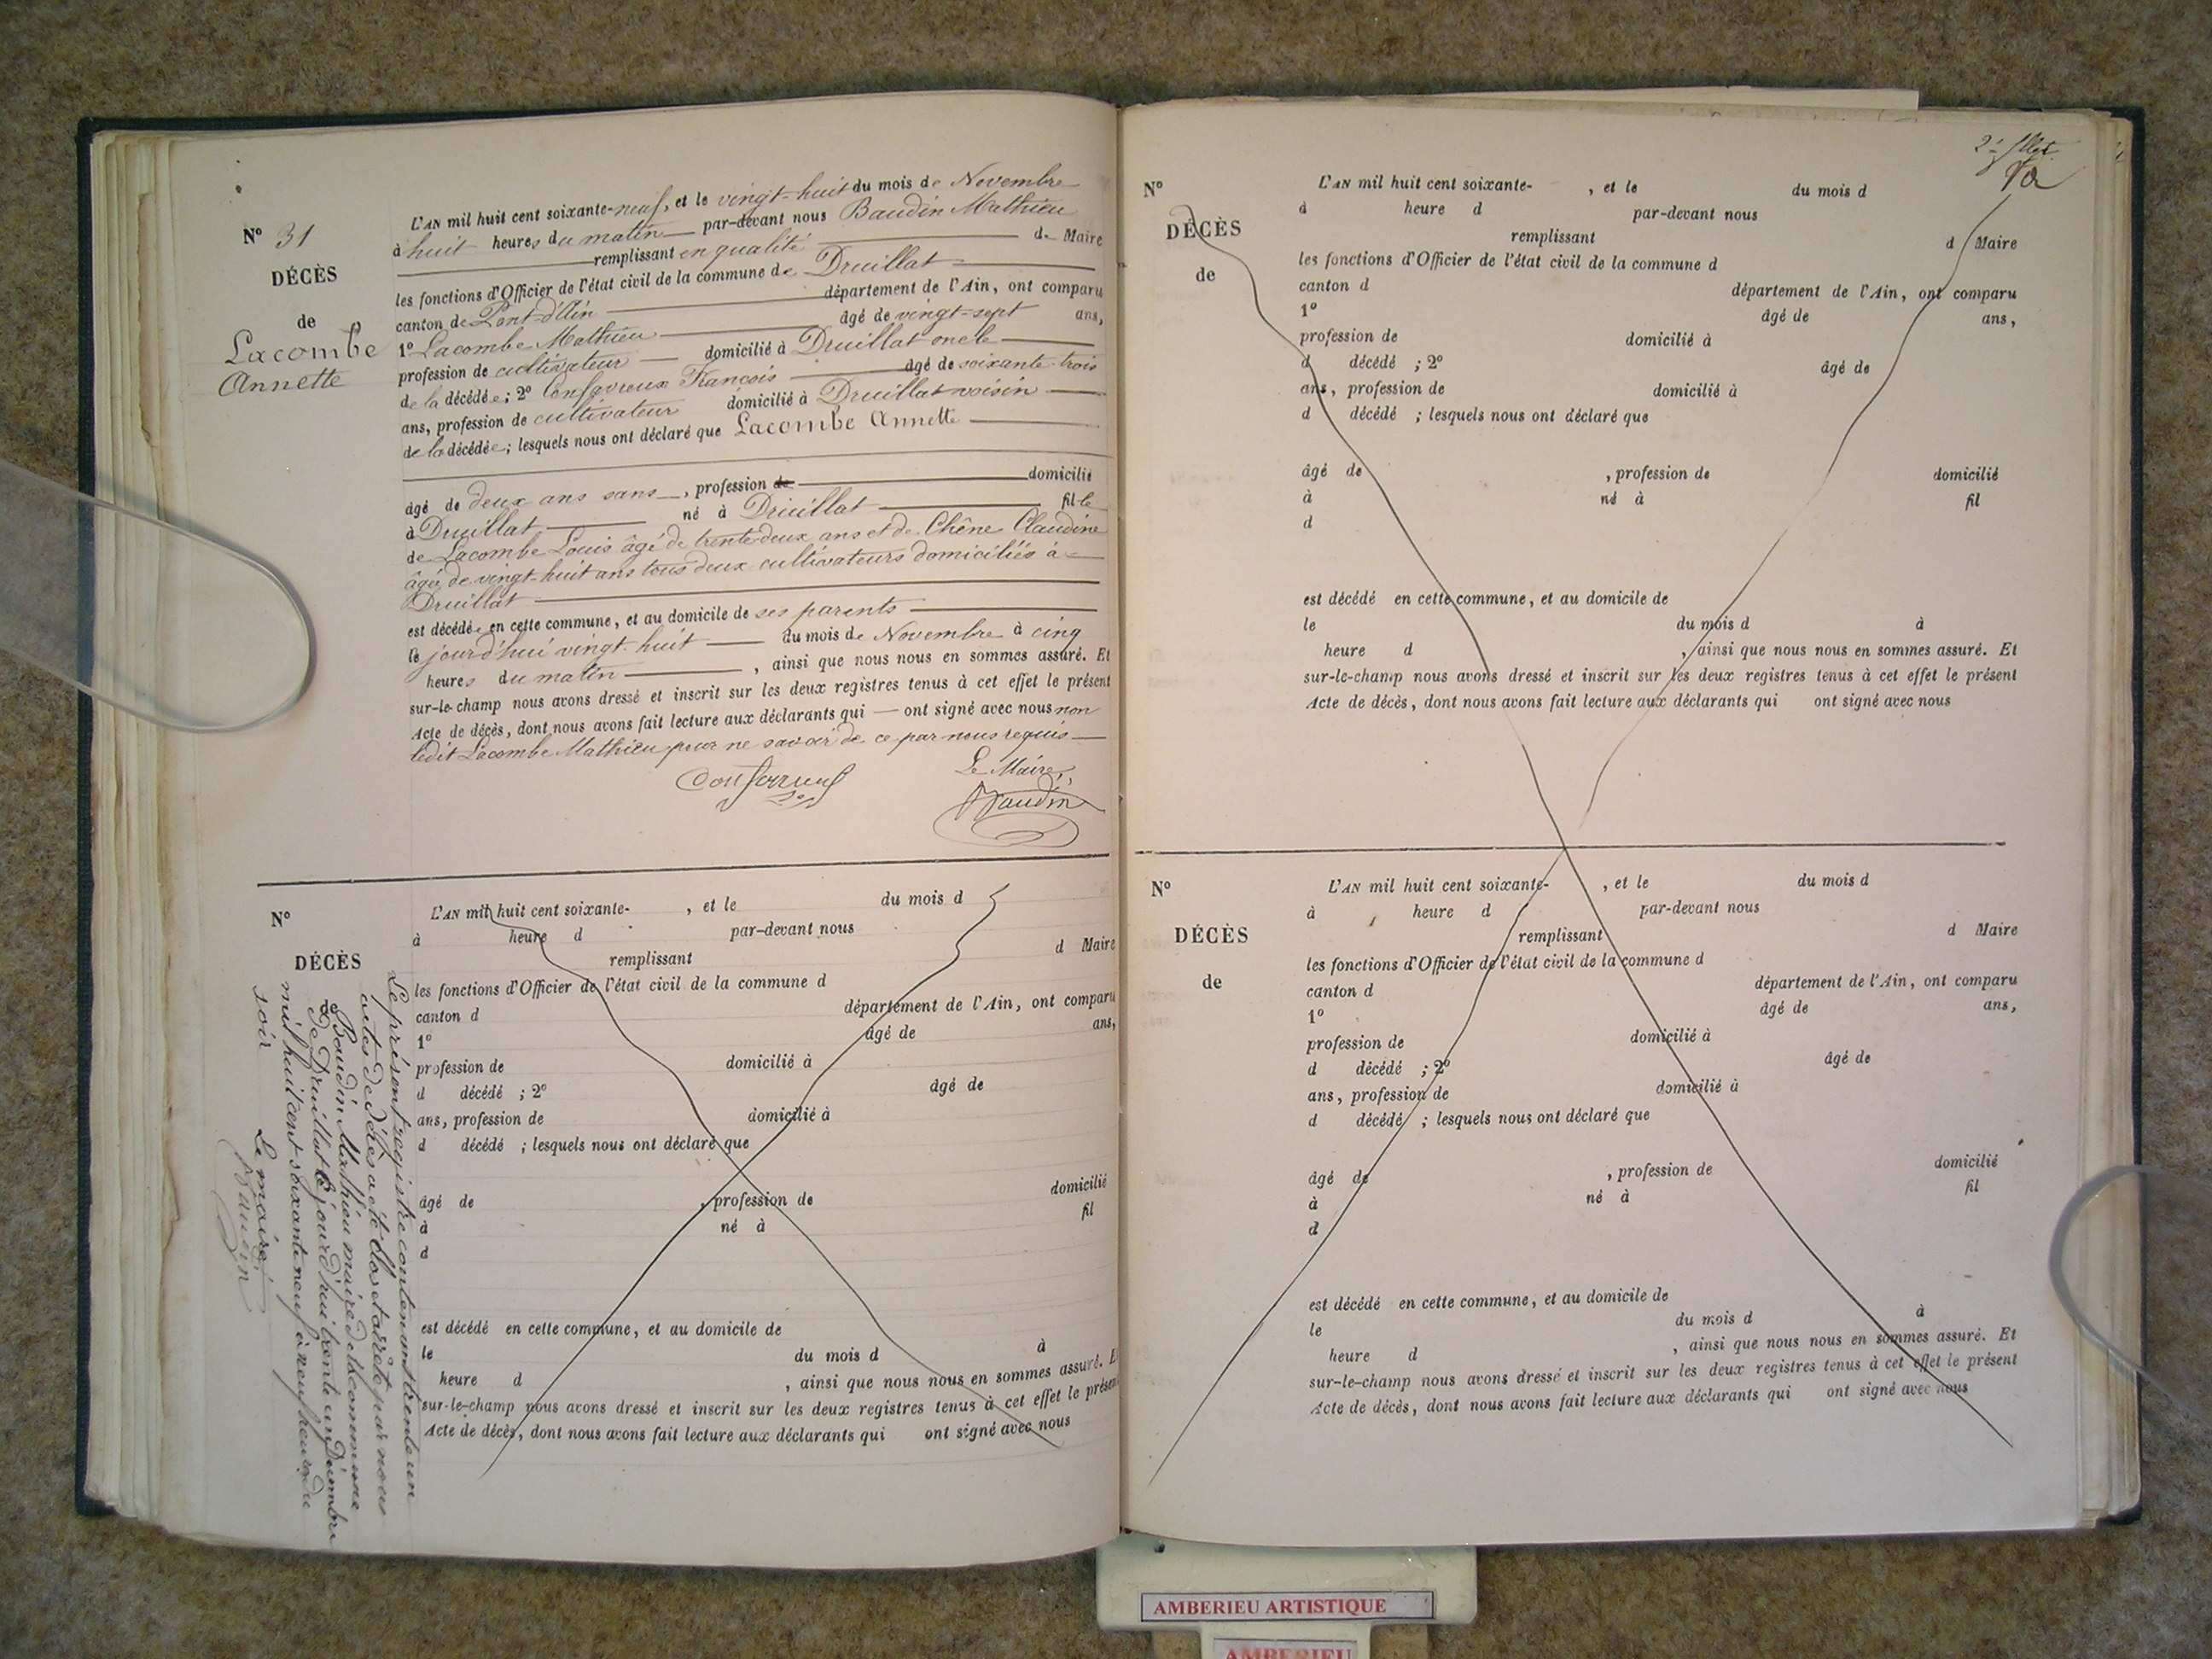 N° 31
DÉCÈS
de
Lacombe
Annette
L'AN mil huit cent soixante-neuf, et le vingt-huit du mois de Novembre
à huit heures du matin par-devant nous Baudin Mathieu
remplissant en qualité de Maire
les fonctions d'Officier de l'état civil de la commune de Druillat
canton de Pont-d'Ain département de l'Ain, ont comparu
1° Lacombe Mathieu âgé de vingt-sept ans,
profession de cultivateur domicilié à Druillat oncle
de la décédée; 2° Confavreux François âgé de soixante-trois
ans, profession de cultivateur domicilié à Druillat voisin
de la décédée; lesquels nous ont déclaré que Lacombe Annette
âgé de deux ans sans, profession de domicilié
à Druillat né à Druillat fille
de Lacombe Louis âgé de trente-deux ans et de Chêne Claudine
âgée de vingt-huit ans tous deux cultivateurs domiciliés à
Druillat
est décédée en cette commune, et au domicile de ses parents
le jourd'hui vingt-huit du mois de Novembre à cinq
heures du matin, ainsi que nous nous en sommes assuré. Et
sur-le-champ nous avons dressé et inscrit sur les deux registres tenus à cet effet le présent
Acte de décès, dont nous avons fait lecture aux déclarants qui ont signé avec nous non
ledit Lacombe Mathieu pour ne savoir de ce par nous requis
Le Maire,
Confavreux
Baudin
N°
DÉCÈS
de
L'AN mil huit cent soixante- , et le du mois d
à heure d par-devant nous
remplissant d Maire
les fonctions d'Officier de l'état civil de la commune d
canton d département de l'Ain, ont comparu
1° âgé de ans,
profession de domicilié à
d décédé ; 2° âgé de
ans, profession de domicilié à
d décédé ; lesquels nous ont déclaré que
âgé de , profession de domicilié
à né à fil
d
est décédé en cette commune, et au domicile de
le du mois d à
heure d , ainsi que nous nous en sommes assuré. E
sur-le-champ nous avons dressé et inscrit sur les deux registres tenus à cet effet le présen
Acte de décès, dont nous avons fait lecture aux déclarants qui ont signé avec nous
Le présent registre contenant trente un
actes de décès a été clos et arrêté par nous
Baudin Mathieu maire de la commune
de Druillat le jourd'hui trente un Décembre
mil huit cent soixante neuf à neuf heures du
soir Le maire
Baudin
2e fllet
N°
DÉCÈS
de
L'AN mil huit cent soixante- , et le du mois d
à heure d par-devant nous
remplissant d Maire
les fonctions d'Officier de l'état civil de la commune d
canton d département de l'Ain, ont comparu
1° âgé de ans,
profession de domicilié à
d décédé ; 2° âgé de
ans, profession de domicilié à
d décédé ; lesquels nous ont déclaré que
âgé de , profession de domicilié
à né à fil
d
est décédé en cette commune, et au domicile de
le du mois d à
heure d , ainsi que nous nous en sommes assuré. Et
sur-le-champ nous avons dressé et inscrit sur les deux registres tenus à cet effet le présent
Acte de décès, dont nous avons fait lecture aux déclarants qui ont signé avec nous
N°
DÉCÈS
de
L'AN mil huit cent soixante- , et le du mois d
à heure d par-devant nous
remplissant d Maire
les fonctions d'Officier de l'état civil de la commune d
canton d département de l'Ain, ont comparu
1° âgé de ans,
profession de domicilié à
d décédé ; 2° âgé de
ans, profession de domicilié à
d décédé ; lesquels nous ont déclaré que
âgé de , profession de domicilié
à né à fil
d
est décédé en cette commune, et au domicile de
le du mois d à
heure d , ainsi que nous nous en sommes assuré. Et
sur-le-champ nous avons dressé et inscrit sur les deux registres tenus à cet effet le présent
Acte de décès, dont nous avons fait lecture aux déclarants qui ont signé avec nous
AMBERIEU ARTISTIQUE
AMBERIEU